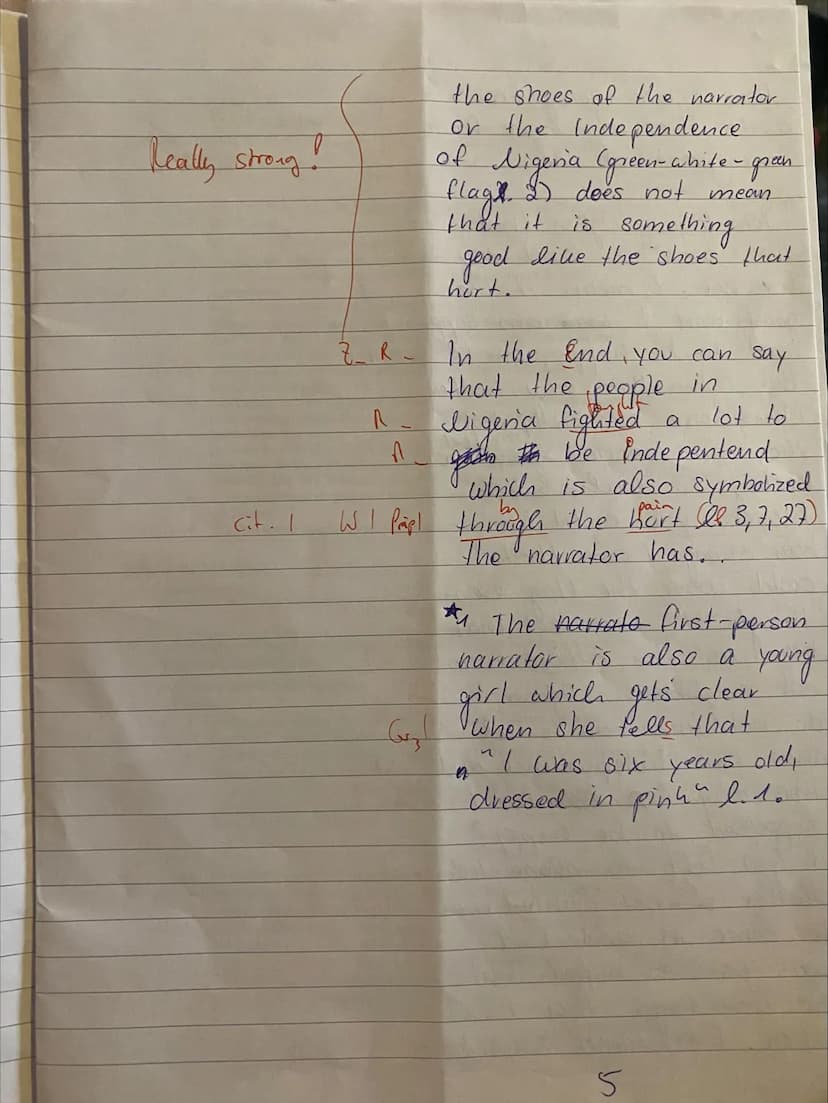 the shoes of the narrator
or the Independence
Really strong! of Nigeria (green-white-green
flag l. 2) does not mean
that it is something
good like the shoes that
hurt.
Z_ R_ In the End, you can say
that the people in
fought
R_ Nigeria fighted a lot to
R_ be independend
which is also symbolized
by pain
Cit. | W | Präp| through the hurt (ll 3, 7, 27)
The narrator has...
*1 The narrato first-person
narrator is also a young
girl which gets clear
Gr,! when she tells that
"I was six years old,
dressed in pink" l. 1.
5